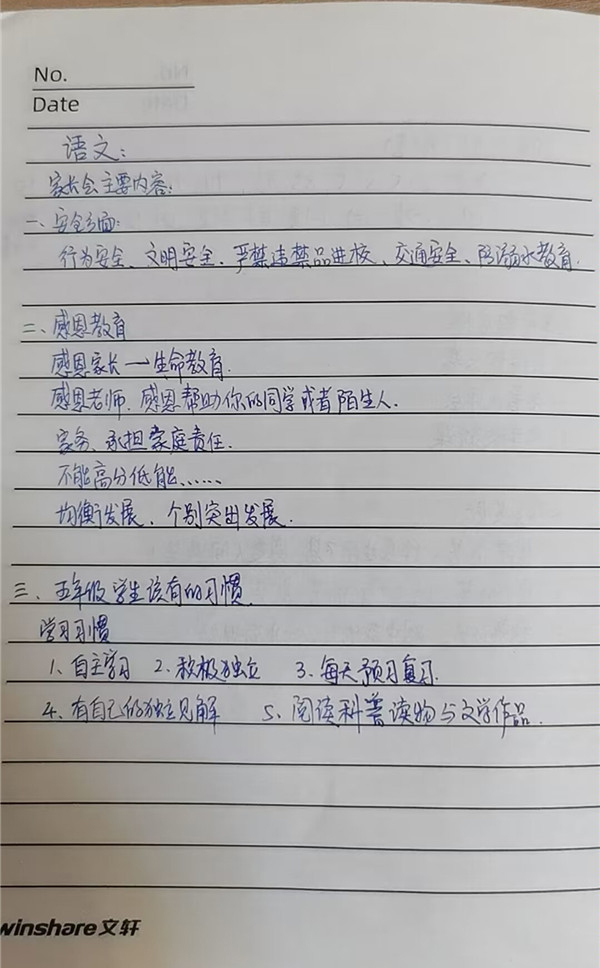 No.
Date
语文:
家长会主要内容:
一、安全方面:
行为安全、文明安全、严禁违禁品进校、交通安全、防溺水教育.
二、感恩教育
感恩家长→生命教育.
感恩老师、感恩帮助你的同学或者陌生人.
家务、承担家庭责任.
不能高分低能……
均衡发展、个别突出发展.
三、五年级学生该有的习惯.
学习习惯
1、自主学习 2、积极独立 3、每天预习复习.
4、有自己的独立见解 5、阅读科普读物与文学作品.
winshare文轩